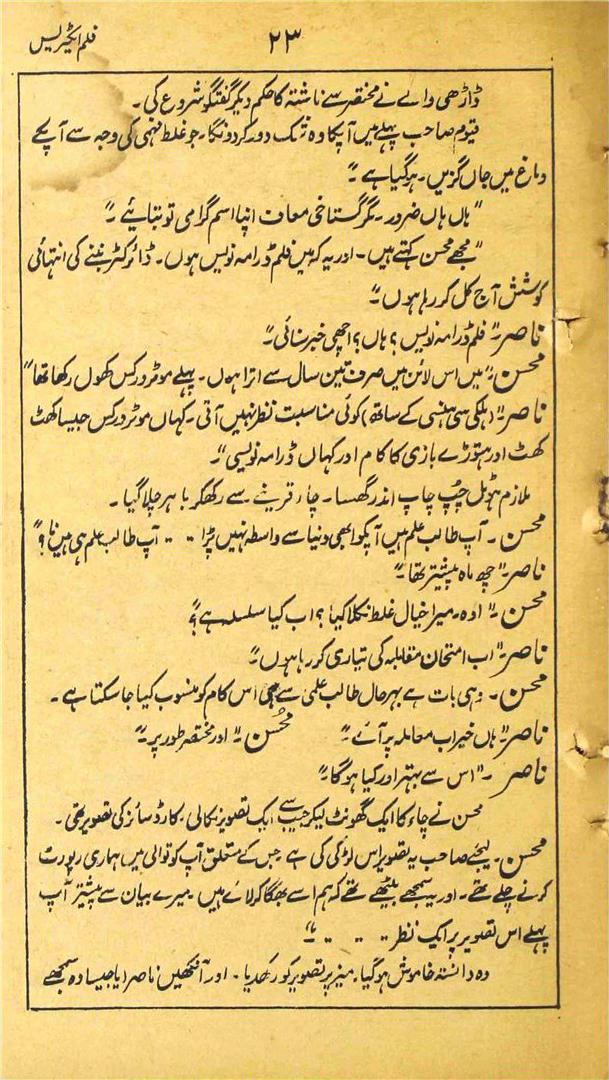 فلم ایکٹریس
۲۳
ڈاڑھی والے نے مختصر سے ناشتہ کا حکم دیکر گفتگو شروع کی۔
قیوم صاحب پہلے میں آپکا وہ شک دور کردونگا۔ جو غلط فہمی کی وجہ سے آپکے
دماغ میں جاں گزیں۔ ہوگیا ہے ؔ"
"ہاں ہاں ضرور۔ مگر گستاخی معاف اپنا اسم گرامی تو بتائیے۔"
"مجھے محسن کہتے ہیں۔ اور یہ کہ میں فلم ڈرامہ نویس ہوں۔ ڈائرکٹر بننے کی انتہائی
کوشش آج کل کر رہا ہوں۔"
ناصر۔ "فلم ڈرامہ نویس ؟ ہاں؟ اچھی خبر سنائی۔"
محسن۔ "میں اس لائن میں صرف تین سال سے اترا ہوں۔ پہلے موٹر ورکس کھول رکھا تھا"
ناصر۔ "(ہلکی سی ہنسی کے ساتھ) کوئی مناسبت نظر نہیں آتی۔ کہاں موٹر ورکس جیسا کھٹ
کھٹ اور ہتوڑے بازی کا کام اور کہاں ڈرامہ نویسی۔"
ملازم ہوٹل چپ چاپ اندر گھسا۔ چاء قرینے سے رکھکر باہر چلا گیا۔
محسن۔ آپ طالب علم ہیں آپکو ابھی دنیا سے واسطہ نہیں پڑا ۔۔ آپ طالب علم ہی ہیں نا؟"
ناصر۔ "چھ ماہ پیشتر تھا۔"
محسن۔ "اوہ۔ میرا خیال غلط نکلا کیا؟ اب کیا سلسلہ ہے ؟"
ناصر۔ "اب امتحان مقابلہ کی تیاری کر رہا ہوں۔"
محسن۔ وہی بات ہے بہرحال طالب علمی سے ہی اس کام کو منسوب کیا جاسکتا ہے۔
ناصر۔ "ہاں خیر اب معاملہ پر آئے۔" محسن۔ "اور مختصر طور پر۔"
ناصر۔ "اس سے بہتر اور کیا ہوگا۔"
محسن نے چاء کا ایک گھونٹ لیکر جیب سے ایک تصویر نکالی۔ کارڈ سائز کی تصویر تھی۔
محسن۔ لیجئے صاحب یہ تصویر اس لڑکی کی ہے جس کے متعلق آپ کوتوالی میں ہماری رپورٹ
کرنے چلے تھے۔ اور یہ سمجھے بیٹھے تھے کہ ہم اسے بھگا کر لائے ہیں۔ میرے بیان سے پیشتر آپ
پہلے اس تصویر پر ایک نظر ۔ ۔ ۔ ۔"
وہ دانستہ خاموش ہوگیا۔ میز پر تصویر کو رکھدیا۔ اور آنکھیں ناصر جیسا وہ سمجھے